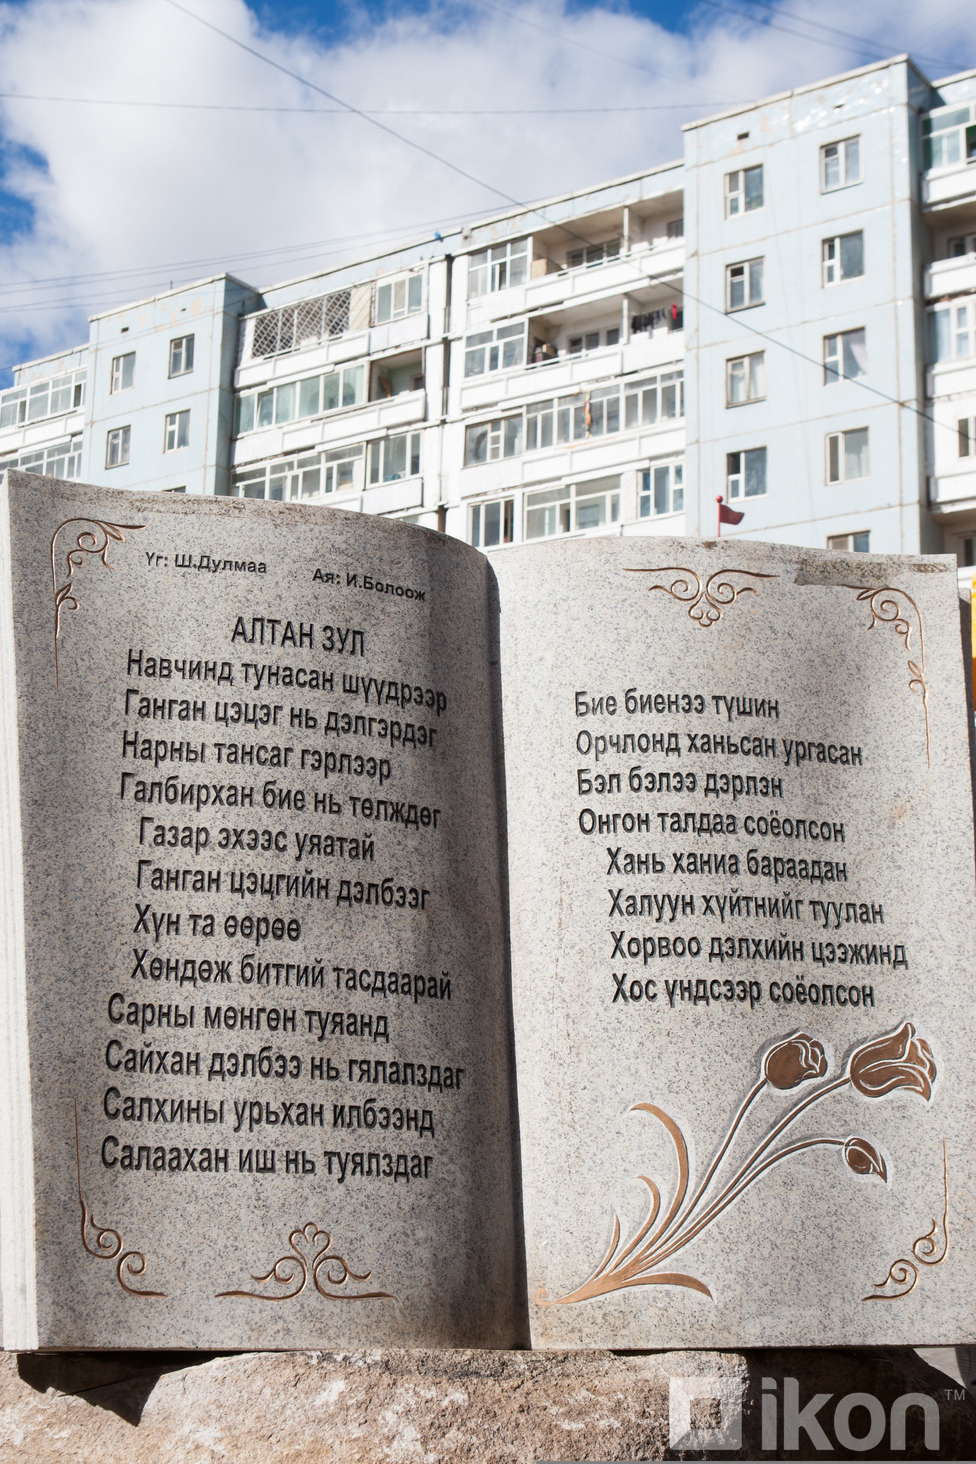 Үг: Ш.Дулмаа Ая: И.Болоож
АЛТАН ЗУЛ
Навчинд тунасан шүүдрээр
Ганган цэцэг нь дэлгэрдэг
Нарны тансаг гэрлээр
Галбирхан бие нь төлждөг
Газар эхээс уяатай
Ганган цэцгийн дэлбээг
Хүн та өөрөө
Хөндөж битгий тасдаарай
Сарны мөнгөн туяанд
Сайхан дэлбээ нь гялалздаг
Салхины урьхан илбээнд
Салаахан иш нь туялздаг
Бие биенээ түшин
Орчлонд ханьсан ургасан
Бэл бэлээ дэрлэн
Онгон талдаа соёолсон
Хань ханиа бараадан
Халуун хүйтнийг туулан
Хорвоо дэлхийн цээжинд
Хос үндсээр соёолсон
ikon TM